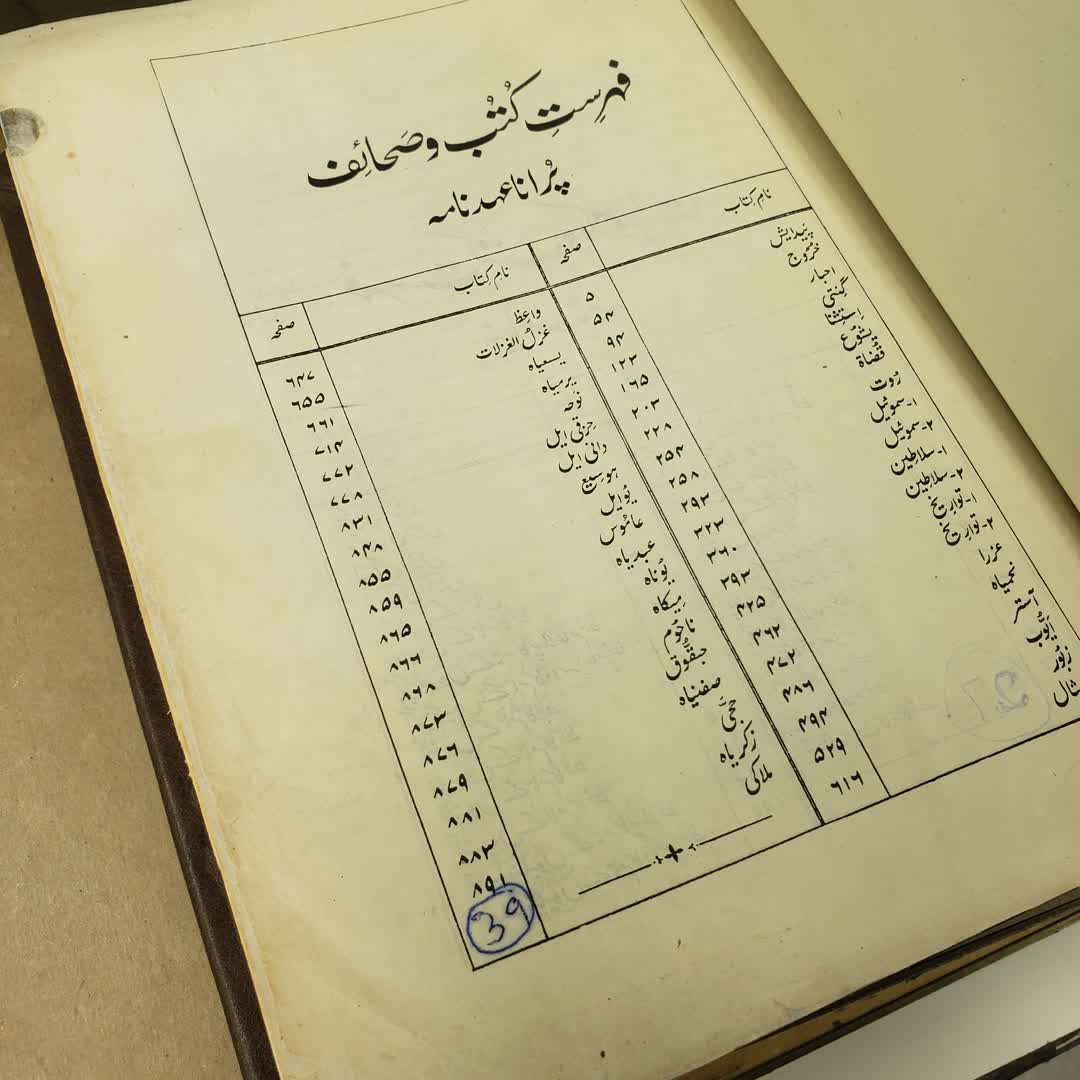 فہرستِ کُتُب و صَحائِف
پُرانا عہدنامہ
نامِ کِتاب صفحہ
پَیدایش ۵
خرُوج ۵۴
احبار ۹۴
گِنتی ۱۲۳
اِستِثنا ۱۶۵
یشُوع ۲۰۳
قُضاة ۲۲۸
رُوت ۲۵۴
۱-سموئیل ۲۵۸
۲-سموئیل ۲۹۳
۱-سلاطِین ۳۲۳
۲-سلاطِین ۳۶۰
۱-توارِیخ ۳۹۳
۲-توارِیخ ۴۲۵
عزرا ۴۶۲
نحمیاہ ۴۷۲
آستر ۴۸۶
ایُّوب ۴۹۴
زبُور ۵۲۹
مثال ۶۱۶
نامِ کِتاب صفحہ
واعِظ ۶۴۷
غزلُ الغزلات ۶۵۵
یسعیاہ ۶۶۱
یرمیاہ ۷۱۴
نَوحہ ۷۷۲
حِزقی ایل ۷۷۸
دانی ایل ۸۳۱
ہوسیع ۸۴۸
یُوایل ۸۵۵
عامُوس ۸۵۹
عبدیاہ ۸۶۵
یُوناہ ۸۶۶
مِیکاہ ۸۶۸
ناحُوم ۸۷۳
حبقُّوق ۸۷۶
صفنیاہ ۸۷۹
حجَّی ۸۸۱
زکریاہ ۸۸۳
ملاکی ۸۹۱
39
27